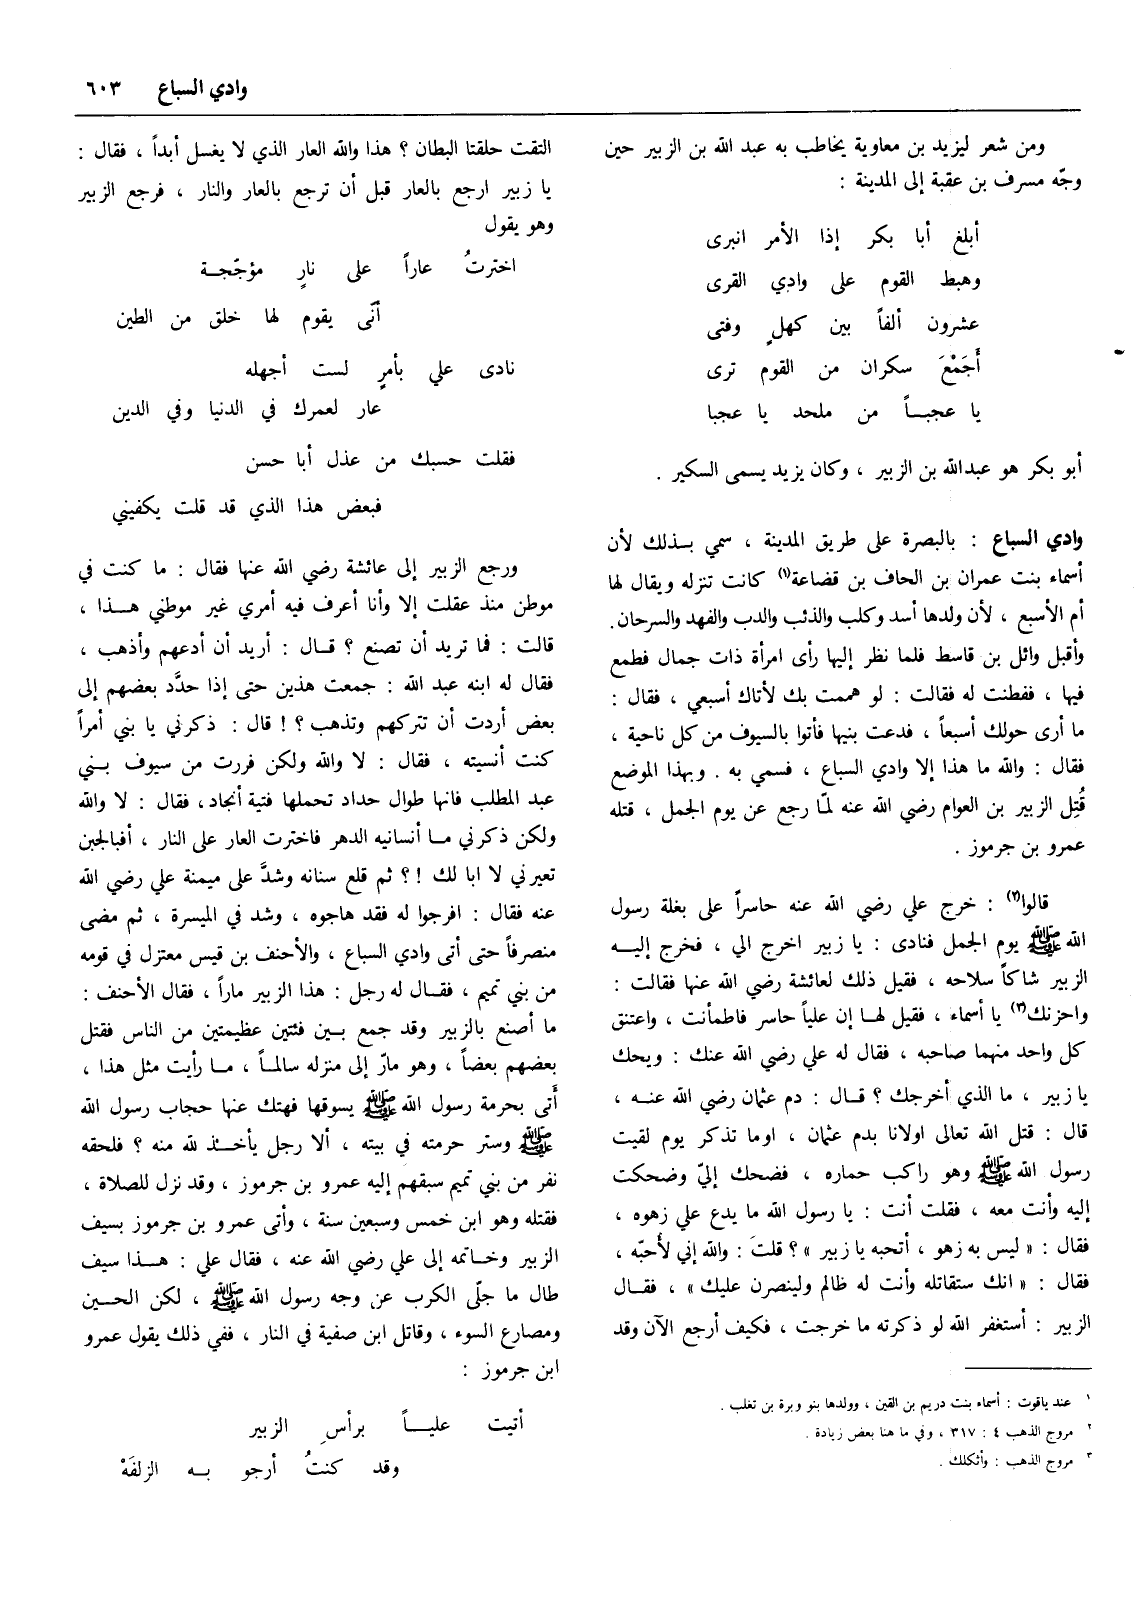 وادي السباع ٦٠٣
ومن شعر ليزيد بن معاوية يخاطب به عبد الله بن الزبير حين
وجّه مسرف بن عقبة إلى المدينة :
أبلغ أبا بكر إذا الأمر انبرى
وهبط القوم على وادي القرى
عشرون ألفاً بين كهلٍ وفتى
أَجَمْعَ سكران من القوم ترى
يا عجبـــاً من ملحد يا عجبا
أبو بكر هو عبدالله بن الزبير ، وكان يزيد يسمى السكير .
وادي السباع : بالبصرة على طريق المدينة ، سمي بـــذلك لأن
أسماء بنت عمران بن الحاف بن قضاعة(١) كانت تنزله ويقال لها
أم الأسبع ، لأن ولدها أسد وكلب والذئب والدب والفهد والسرحان.
وأقبل وائل بن قاسط فلما نظر إليها رأى امرأة ذات جمال فطمع
فيها ، ففطنت له فقالت : لو هممت بك لأتاك أسبعي ، فقال :
ما أرى حولك أسبعاً ، فدعت بنيها فأتوا بالسيوف من كل ناحية ،
فقال : والله ما هذا إلا وادي السباع ، فسمي به . وبهذا الموضع
قُتِل الزبير بن العوام رضي الله عنه لمّا رجع عن يوم الجمل ، قتله
عمرو بن جرموز .
قالوا(٢) : خرج علي رضي الله عنه حاسراً على بغلة رسول
الله ﷺ يوم الجمل فنادى : يا زبير اخرج الي ، فخرج إليـــه
الزبير شاكاً سلاحه ، فقيل ذلك لعائشة رضي الله عنها فقالت :
واحزنك(٣) يا أسماء ، فقيل لهـــا إن علياً حاسر فاطمأنت ، واعتنق
كل واحد منهما صاحبه ، فقال له علي رضي الله عنك : ويحك
يا زبير ، ما الذي أخرجك ؟ قـــال : دم عثمان رضي الله عنـــه ،
قال : قتل الله تعالى اولانا بدم عثمان ، اوما تذكر يوم لقيت
رسول الله ﷺ وهو راكب حماره ، فضحك إليّ وضحكت
إليه وأنت معه ، فقلت أنت : يا رسول الله ما يدع علي زهوه ،
فقال : « ليس به زهو ، أتحبه يا زبير » ؟ قلتَ : والله إني لأَحبّه ،
فقال : « انك ستقاتله وأنت له ظالم ولينصرن عليك » ، فقـــال
الزبير : أستغفر الله لو ذكرته ما خرجت ، فكيف أرجع الآن وقد
١ عند ياقوت : أسماء بنت دريم بن القين ، وولدها بنو وبرة بن تغلب .
٢ مروج الذهب ٤ : ٣١٧ ، وفي ما هنا بعض زيادة .
٣ مروج الذهب : وأثكلك .
التقت حلقتا البطان ؟ هذا والله العار الذي لا يغسل أبداً ، فقال :
يا زبير ارجع بالعار قبل أن ترجع بالعار والنار ، فرجع الزبير
وهو يقول
اخترتُ عاراً على نارٍ مؤجّجـــة
أنّى يقوم لها خلق من الطين
نادى علي بأمرٍ لست أجهله
عار لعمرك في الدنيا وفي الدين
فقلت حسبك من عذل أبا حسن
فبعض هذا الذي قد قلت يكفيني
ورجع الزبير إلى عائشة رضي الله عنها فقال : ما كنت في
موطن منذ عقلت إلا وأنا أعرف فيه أمري غير موطني هـــذا ،
قالت : فما تريد أن تصنع ؟ قـــال : أريد أن أدعهم وأذهب ،
فقال له ابنه عبد الله : جمعت هذين حتى إذا حدَّد بعضهم إلى
بعض أردت أن تتركهم وتذهب ؟ ! قال : ذكرني يا بني أمراً
كنت أنسيته ، فقال : لا والله ولكن فررت من سيوف بـــني
عبد المطلب فانها طوال حداد تحملها فتية أنجاد، فقال : لا والله
ولكن ذكرني مـــا أنسانيه الدهر فاخترت العار على النار ، أفبالجبن
تعيرني لا ابا لك !؟ ثم قلع سنانه وشدَّ على ميمنة علي رضي الله
عنه فقال : افرجوا له فقد هاجوه ، وشد في الميسرة ، ثم مضى
منصرفاً حتى أتى وادي السباع ، والأحنف بن قيس معتزل في قومه
من بني تميم ، فقـــال له رجل : هذا الزبير ماراً ، فقال الأحنف :
ما أصنع بالزبير وقد جمع بـــين فئتين عظيمتين من الناس فقتل
بعضهم بعضاً ، وهو مارّ إلى منزله سالمـــاً ، مـــا رأيت مثل هذا ،
أَتى بحرمة رسول الله ﷺ يسوقها فهتك عنها حجاب رسول الله
ﷺ وستر حرمته في بيته ، ألا رجل يأخـــذ لله منه ؟ فلحقه
نفر من بني تميم سبقهم إليه عمرو بن جرموز ، وقد نزل للصلاة ،
فقتله وهو ابن خمس وسبعين سنة ، وأتى عمرو بن جرموز بسيف
الزبير وخـــاتمه إلى علي رضي الله عنه ، فقال علي : هـــذا سيف
طال ما جلّى الكرب عن وجه رسول الله ﷺ ، لكن الحـــين
ومصارع السوء ، وقاتل ابن صفية في النار ، ففي ذلك يقول عمرو
ابن جرموز :
أتيت عليـــاً برأسِ الزبير
وقد كنتُ أرجو بـــه الزلفَهْ